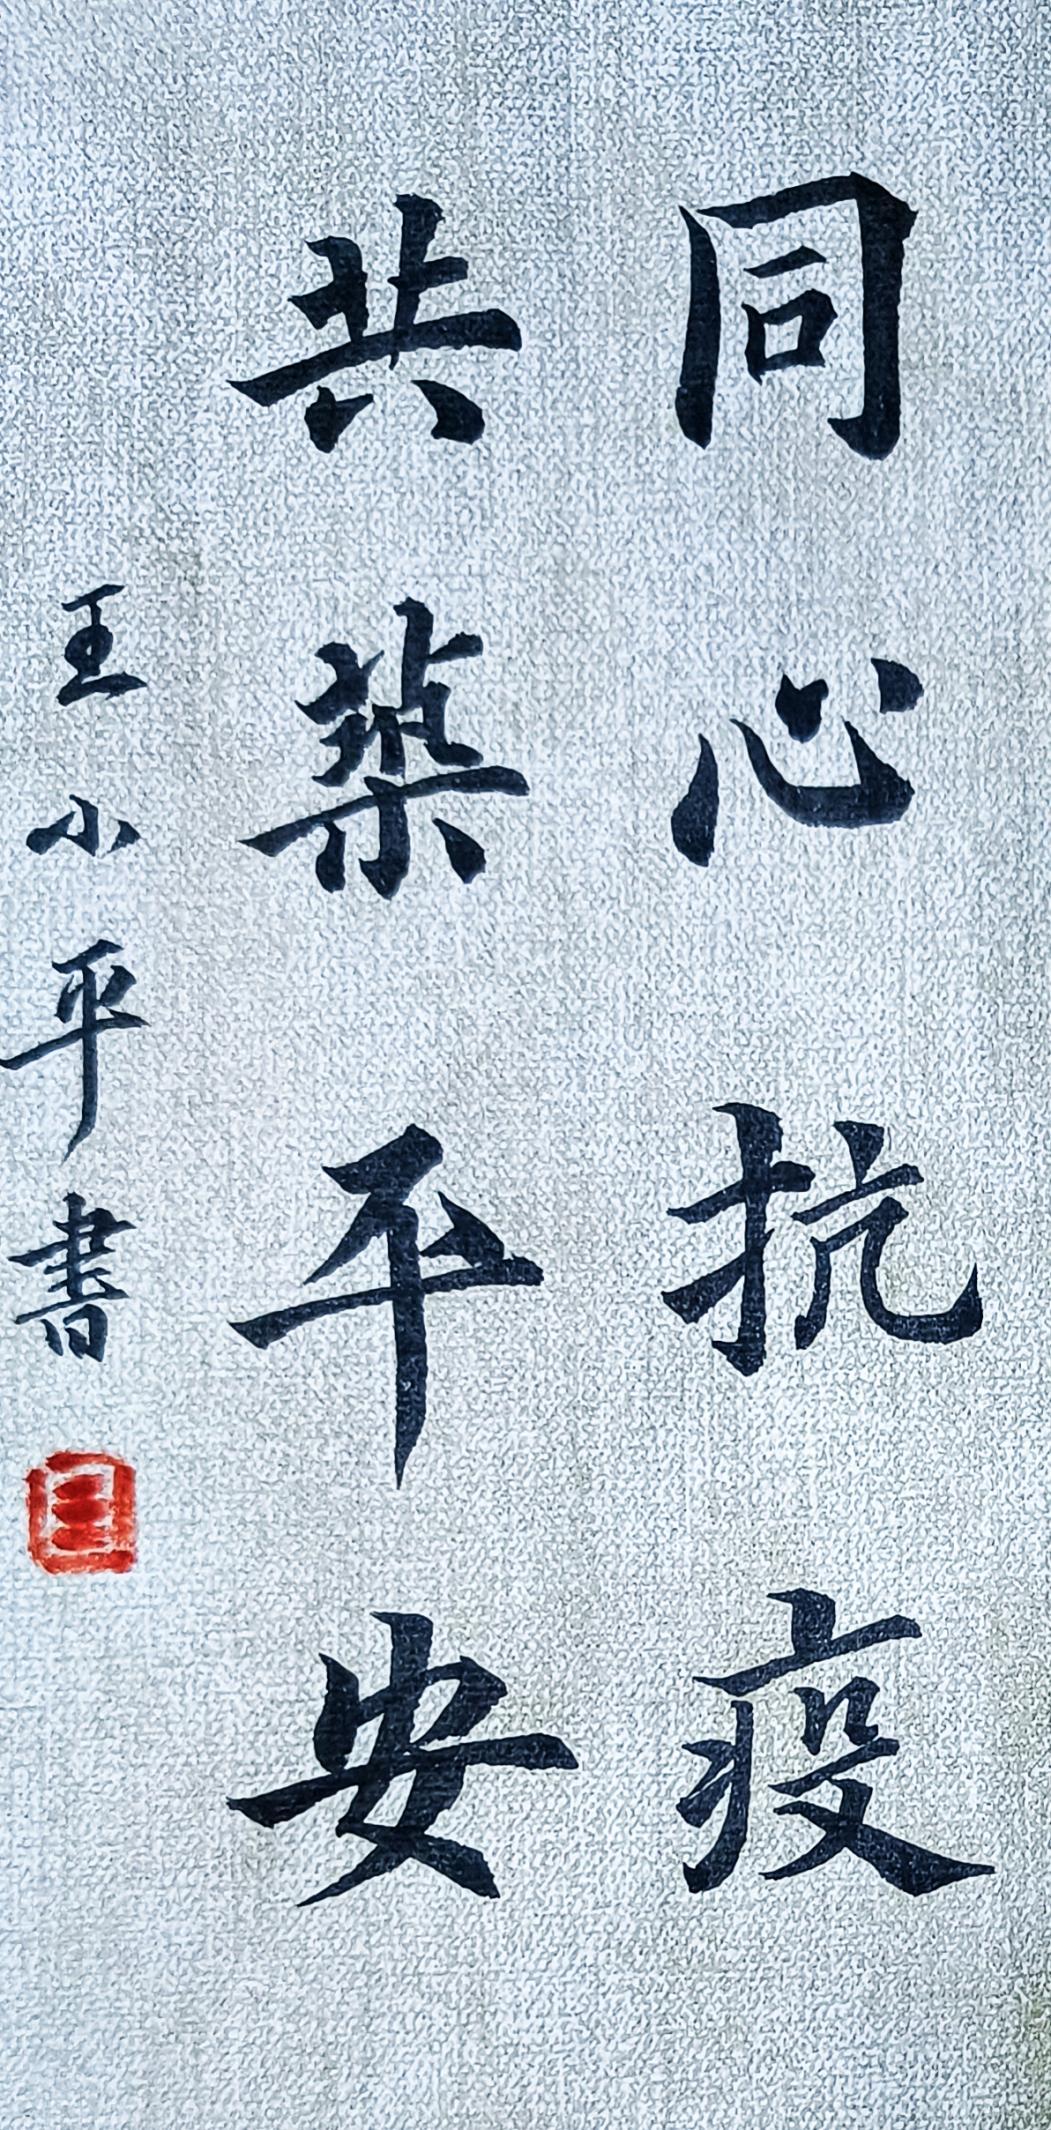 同心抗疫
共築平安
王小平書